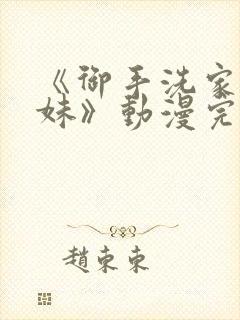 《御手洗家
妹》動漫完
趙束束